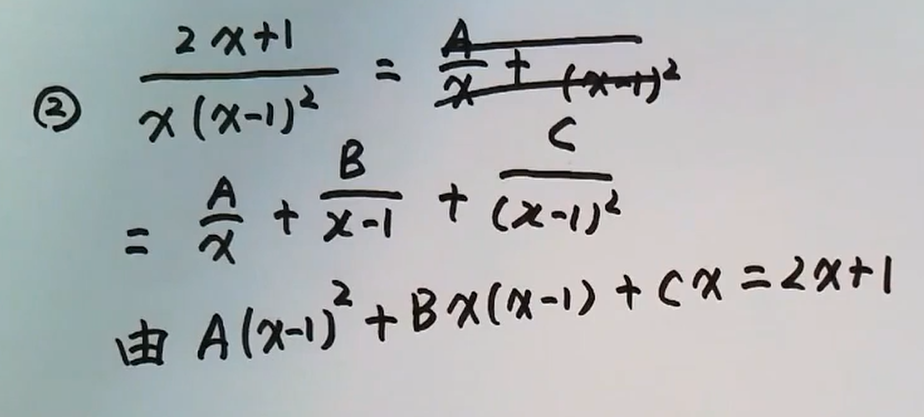 ② (2x+1)/(x(x-1)²) = A/x + (x-1)²
= A/x + B/(x-1) + C/(x-1)²
由 A(x-1)² + Bx(x-1) + Cx = 2x+1